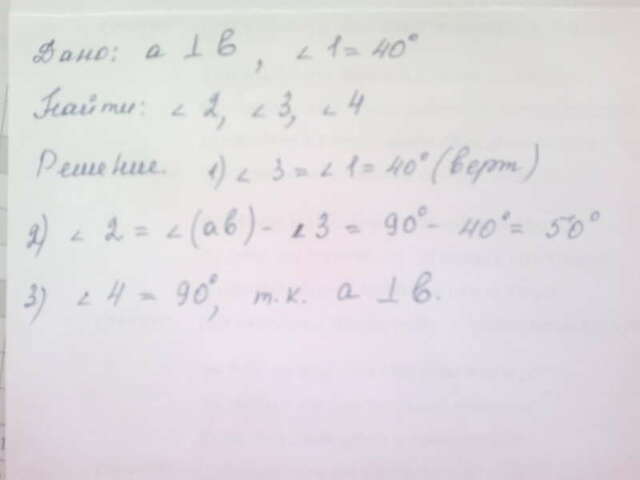 Дано: a ⊥ b, ∠ 1 = 40°
Найти: ∠ 2, ∠ 3, ∠ 4
Решение. 1) ∠ 3 = ∠ 1 = 40° (верт)
2) ∠ 2 = ∠(ab) - ∠3 = 90° - 40° = 50°
3) ∠ 4 = 90°, т.к. a ⊥ b.